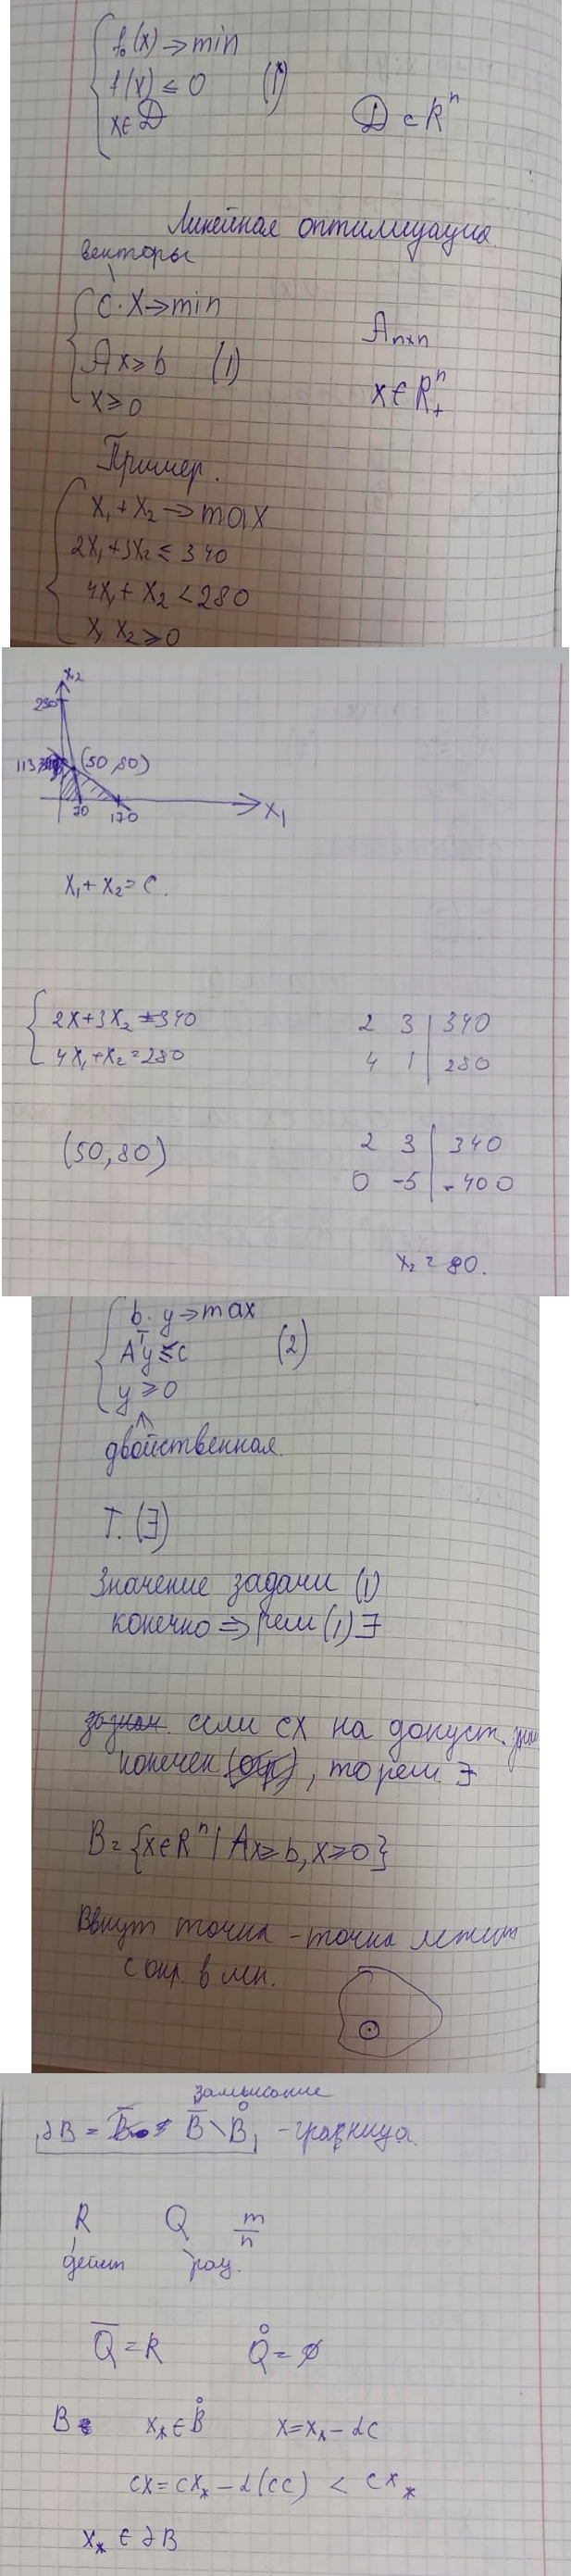 f₀(x) → min
f(x) ≤ 0 (1*)
x ∈ D D ⊂ Rⁿ
Линейная оптимизация
векторы
c · x → min
Aₙₓₙ
Ax ≥ b (1)
x ∈ Rⁿ₊
x ≥ 0
Пример.
x₁ + x₂ → max
2x₁ + 3x₂ ≤ 340
4x₁ + x₂ < 280
x₁ x₂ ≥ 0
x₂
280
113 (50,80)
70 170 x₁
x₁ + x₂ = C.
2x + 3x₂ = 340 2 3 | 340
4x₁ + x₂ = 280 4 1 | 280
(50,80) 2 3 | 340
0 -5 | -400
x₂ = 80.
b · y → max
Aᵀy ≤ c (2)
y ≥ 0
двойственная.
Т. (∃)
Значение задачи (1)
конечно ⇒ реш (1) ∃
если cx на допуст.
конечен (огр), то реш. ∃
B = {x ∈ Rⁿ | Ax ≥ b, x ≥ 0}
Ввнут точка - точка лежит
с окр. в мн.
замыкание
∂B = B̅ \ B̊, - граница.
R Q m/n
дейст рац.
Q̅ = R Q̊ = ∅
B x* ∈ B̊ x = x* - αc
cx = cx* - α(cc) < cx*
x* ∈ ∂B